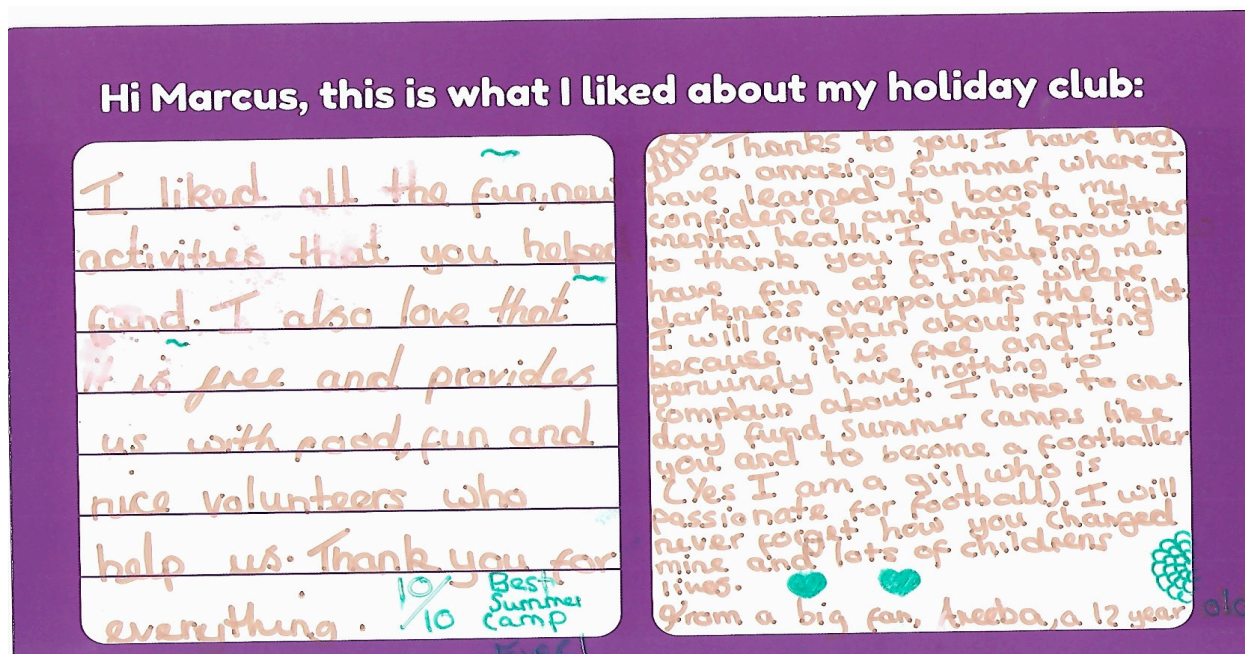 Hi Marcus, this is what I liked about my holiday club:
I liked all the fun, new
activities that you helped
fund. I also love that
it is free and provides
us with food, fun and
nice volunteers who
help us. Thank you for
everything.
10/10
Best
Summer
Camp
Ever!
Thanks to you, I have had
an amazing summer where I
have learned to boost my
confidence and have a better
mental health. I don't know how
to thank you for helping me
have fun at a time where
darkness overpowers the light.
I will complain about nothing
because it is free and I
genuinely have nothing to
complain about. I hope to one
day fund summer camps like
you and to become a footballer
(Yes I am a girl who is
passionate for football). I will
never forget how you changed
mine and lots of childrens
lives.
From a big fan, Areeba, a 12 year old